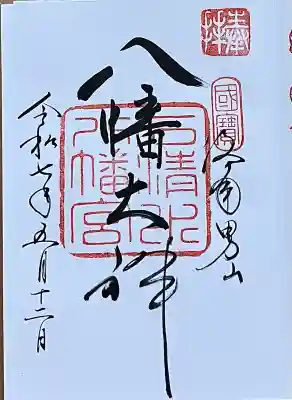 奉拝
國寶
八幡大神
石清水
八幡宮
男山
令和七年五月十二日